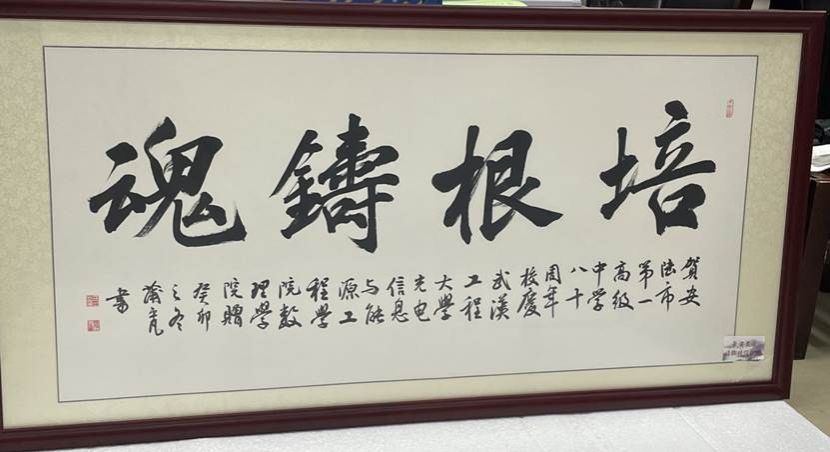 培根鑄魂
賀安
陆市
第一
高级
中学
八十
周年
校慶
武漢
工程
大學
光电
信息
与能
源工
程學
院数
理學
院贈
癸卯
之冬
書